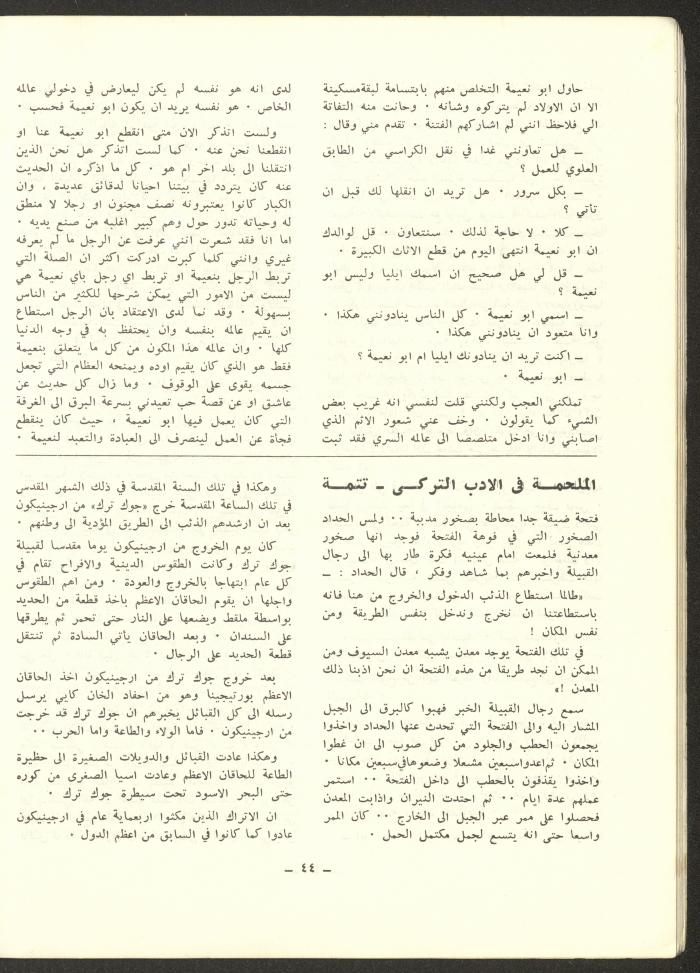 حاول ابو نعيمة التخلص منهم بابتسامة لبقةمسكينة
الا ان الاولاد لم يتركوه وشأنه ٠ وحانت منه التفاتة
الي فلاحظ انني لم اشاركهم الفتنة ٠ تقدم مني وقال :
ــ هل تعاونني غدا في نقل الكراسي من الطابق
العلوي للعمل ؟
ــ بكل سرور ٠ هل تريد ان انقلها لك قبل ان
تأتي ؟
ــ كلا ٠ لا حاجة لذلك ٠ سنتعاون ٠ قل لوالدك
ان ابو نعيمة انتهى اليوم من قطع الاثاث الكبيرة ٠
ــ قل لي هل صحيح ان اسمك ايليا وليس ابو
نعيمة ؟
ــ اسمي ابو نعيمة ٠ كل الناس ينادونني هكذا ٠
وانا متعود ان ينادونني هكذا ٠
ــ اكنت تريد ان ينادونك ايليا ام ابو نعيمة ؟
ــ ابو نعيمة ٠
تملكني العجب ولكنني قلت لنفسي انه غريب بعض
الشيء كما يقولون ٠ وخف عني شعور الاثم الذي
اصابني وانا ادخل متلصصا الى عالمه السري فقد ثبت
لدى انه هو نفسه لم يكن ليعارض في دخولي عالمه
الخاص ٠ هو نفسه يريد ان يكون ابو نعيمة فحسب ٠
ولست اتذكر الان متى انقطع ابو نعيمة عنا او
انقطعنا نحن عنه ٠ كما لست اتذكر هل نحن الذين
انتقلنا الى بلد اخر ام هو ٠ كل ما اذكره ان الحديث
عنه كان يتردد في بيتنا احيانا لدقائق عديدة ، وان
الكبار كانوا يعتبرونه نصف مجنون او رجلا لا منطق
له وحياته تدور حول وهم كبير اغلبه من صنع يديه ٠
اما انا فقد شعرت انني عرفت عن الرجل ما لم يعرفه
غيري وانني كلما كبرت ادركت اكثر ان الصلة التي
تربط الرجل بنعيمة او تربط اي رجل باي نعيمة هي
ليست من الامور التي يمكن شرحها للكثير من الناس
بسهولة ٠ وقد نما لدى الاعتقاد بان الرجل استطاع
ان يقيم عالمه بنفسه وان يحتفظ به في وجه الدنيا
كلها ٠ وان عالمه هذا المكون من كل ما يتعلق بنعيمة
فقط هو الذي كان يقيم اوده ويمنحه العظام التي تجعل
جسمه يقوى على الوقوف ٠ وما زال كل حديث عن
عاشق او عن قصة حب تعيدني بسرعة البرق الى الغرفة
التي كان يعمل فيها ابو نعيمة ، حيث كان ينقطع
فجأة عن العمل لينصرف الى العبادة والتعبد لنعيمة ٠
الملحمــة في الادب التركــي ــ تتمــة
فتحة ضيقة جدا محاطة بصخور مدببة ٠٠ ولمس الحداد
الصخور التي في فوهة الفتحة فوجد انها صخور
معدنية فلمعت امام عينيه فكرة طار بها الى رجال
القبيلة واخبرهم بما شاهد وفكر ، قال الحداد : ــ
«طالما استطاع الذئب الدخول والخروج من هنا فانه
باستطاعتنا ان نخرج وندخل بنفس الطريقة ومن
نفس المكان !
في تلك الفتحة يوجد معدن يشبه معدن السيوف ومن
الممكن ان نجد طريقا من هذه الفتحة ان نحن اذبنا ذلك
المعدن !»
سمع رجال القبيلة الخبر فهبوا كالبرق الى الجبل
المشار اليه والى الفتحة التي تحدث عنها الحداد واخذوا
يجمعون الحطب والجلود من كل صوب الى ان غطوا
المكان ٠ ثم اعدواسبعين مشعلا وضعوهافيسبعين مكانا ٠
واخذوا يقذفون بالحطب الى داخل الفتحة ٠٠ استمر
عملهم عدة ايام ٠٠ ثم احتدت النيران واذابت المعدن
فحصلوا على ممر عبر الجبل الى الخارج ٠٠ كان الممر
واسعا حتى انه يتسع لجمل مكتمل الحمل ٠
وهكذا في تلك السنة المقدسة في ذلك الشهر المقدس
في تلك الساعة المقدسة خرج «جوك ترك» من ارجينيكون
بعد ان ارشدهم الذئب الى الطريق المؤدية الى وطنهم ٠
كان يوم الخروج من ارجينيكون يوما مقدسا لقبيلة
جوك ترك وكانت الطقوس الدينية والافراح تقام في
كل عام ابتهاجا بالخروج والعودة ٠ ومن اهم الطقوس
واجلها ان يقوم الحاقان الاعظم ياخذ قطعة من الحديد
بواسطة ملقط ويضعها على النار حتى تحمر ثم يطرقها
على السندان ٠ وبعد الحاقان ياتي السادة ثم تنتقل
قطعة الحديد على الرجال ٠
بعد خروج جوك ترك من ارجينيكون اخذ الحاقان
الاعظم بورتيجينا وهو من احفاد الخان كايي يرسل
رسله الى كل القبائل يخبرهم ان جوك ترك قد خرجت
من ارجينيكون ٠ فاما الولاء والطاعة واما الحرب ٠٠
وهكذا عادت القبائل والدويلات الصغيرة الى حظيرة
الطاعة للحاقان الاعظم وعادت اسيا الصغرى من كوره
حتى البحر الاسود تحت سيطرة جوك ترك ٠
ان الاتراك الذين مكثوا اربعماية عام في ارجينيكون
عادوا كما كانوا في السابق من اعظم الدول ٠
ــ ٤٤ ــ